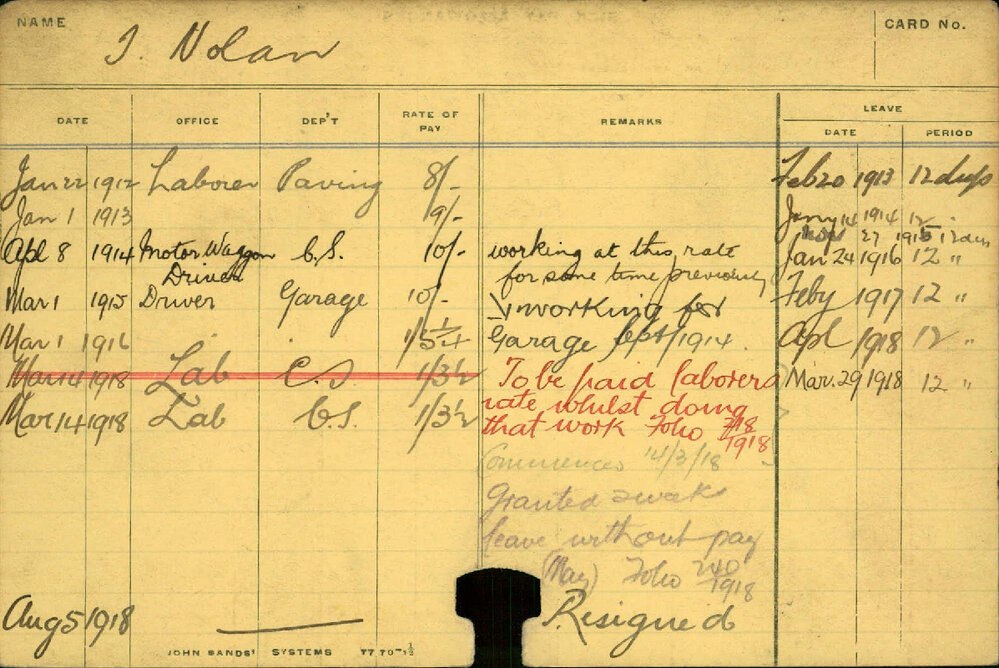 NAME
CARD No.
J. Nolan
DATE OFFICE DEP'T RATE OF PAY REMARKS LEAVE
DATE PERIOD
Jan 22 1912 Laborer Paving 8/- Feb 20 1913 12 days
Jan 1 1913 9/- Jany 14 1914 12 "
Nov 27 1915 12 days
Apl 8 1914 Motor Waggon C.S. 10/- working at this rate Jan 24 1916 12 "
Driver for some time previously
Mar 1 1915 Driver Garage 10/- working for Feby 1917 12 "
Mar 1 1916 1/5¼ Garage Sept 1914. Apl 1918 12 "
Mar 14 1918 Lab C.S 1/3½ To be paid laborers Mar. 29 1918 12 "
Mar 14 1918 Lab C.S. 1/3½ rate whilst doing
that work Folio 718/1918
Commenced 14/3/18
Granted 2 weeks
leave without pay
(May) Folio 240/1918
Aug 5 1918 Resigned
JOHN SANDS' SYSTEMS 77 70-½